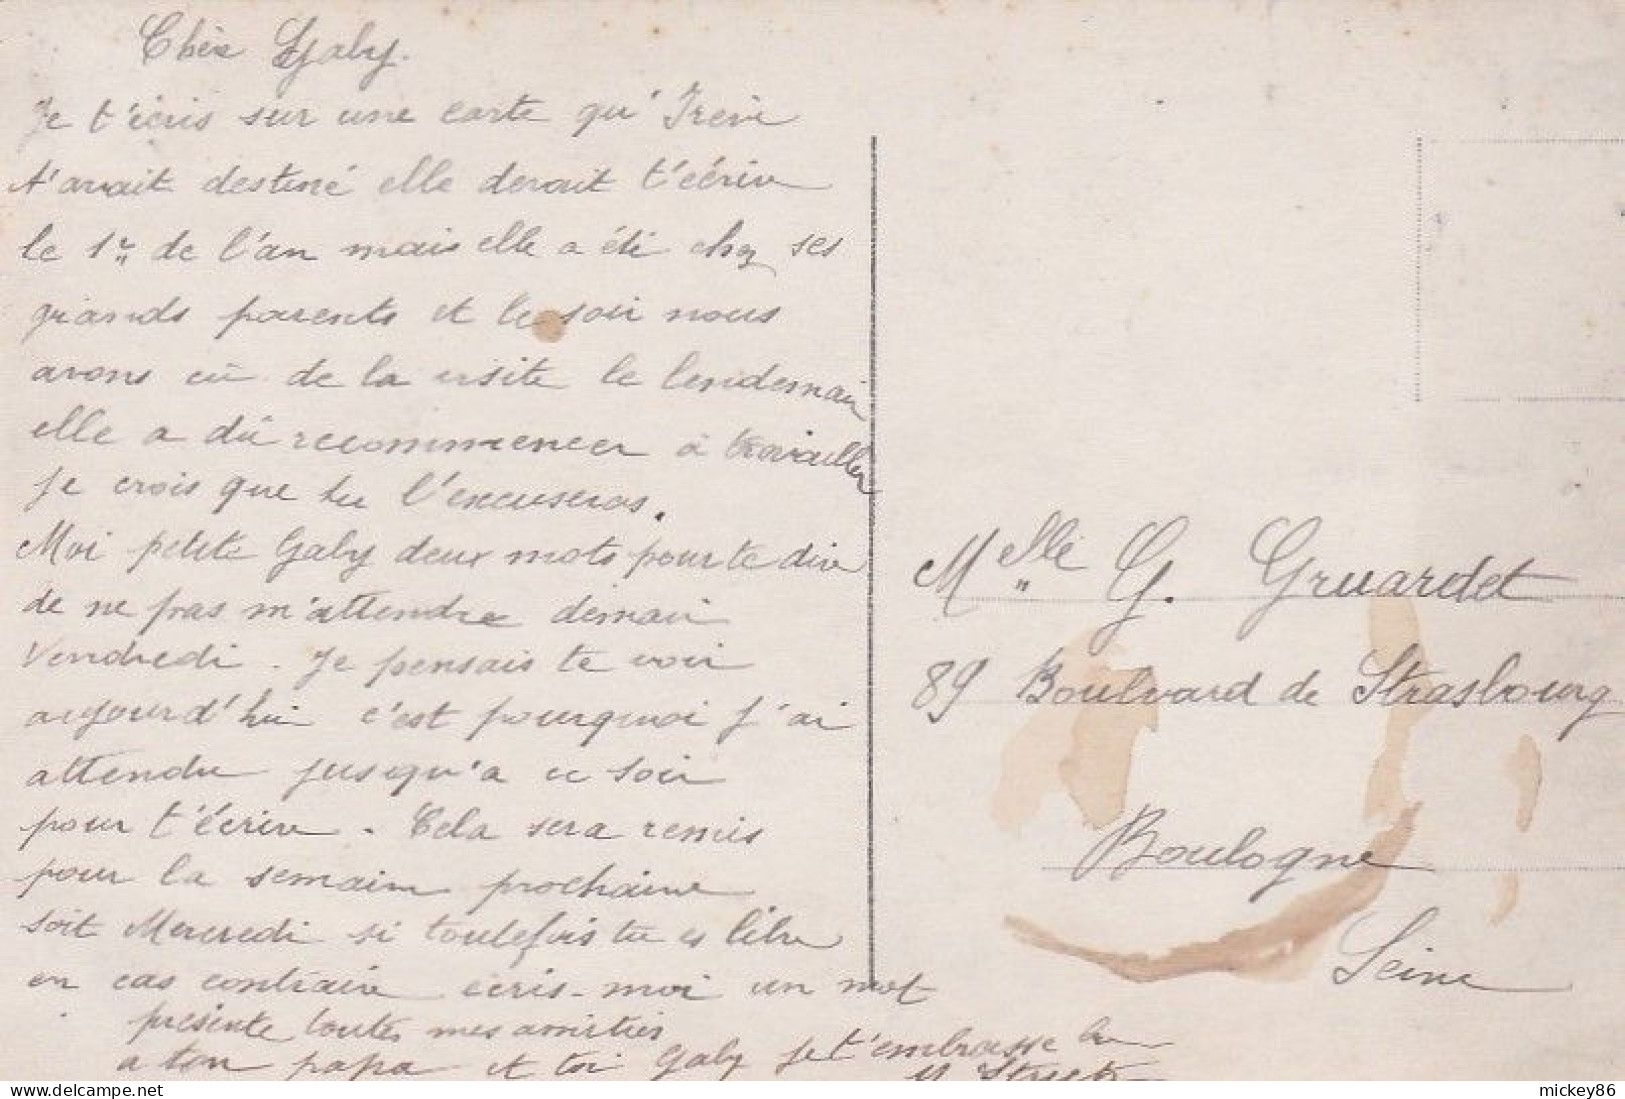 Chère Gaby.
Je t'écris sur une carte qu'Irène
t'avait destiné elle devait t'écrire
le 1er de l'an mais elle a été chez ses
grands parents et le soir nous
avons eû de la visite le lendemain
elle a dû recommencer à travailler
je crois que tu l'excuseras.
Moi petite Gaby deux mots pour te dire
de ne pas m'attendre demain
Vendredi. Je pensais te voir
aujourd'hui c'est pourquoi j'ai
attendu jusqu'a ce soir
pour t'écrire. Cela sera remis
pour la semaine prochaine
soit Mercredi si toutefois tu es libre
en cas contraire écris-moi un mot
présente toutes mes amitiés
a ton papa et toi Gaby je t'embrasse
Melle G. Gruardet
89 Boulevard de Strasbourg
Boulogne
Seine
delcampe.net
mickey86